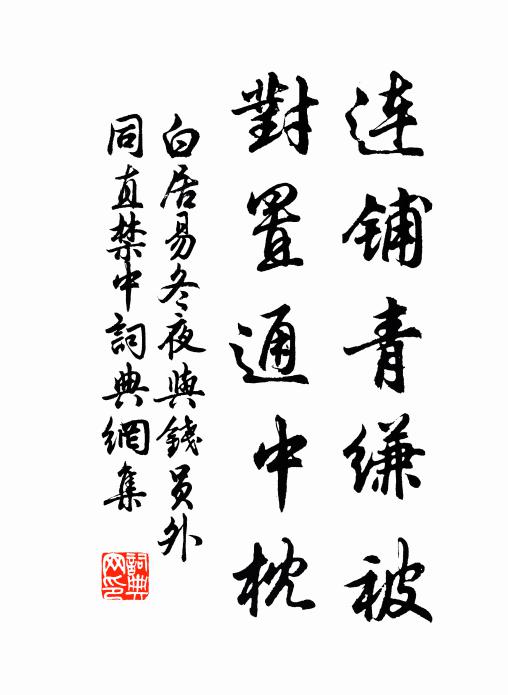 连铺青缣被
對置通中枕
白居易冬夜與錢员外
同直禁中詞典網集
詞典
网印